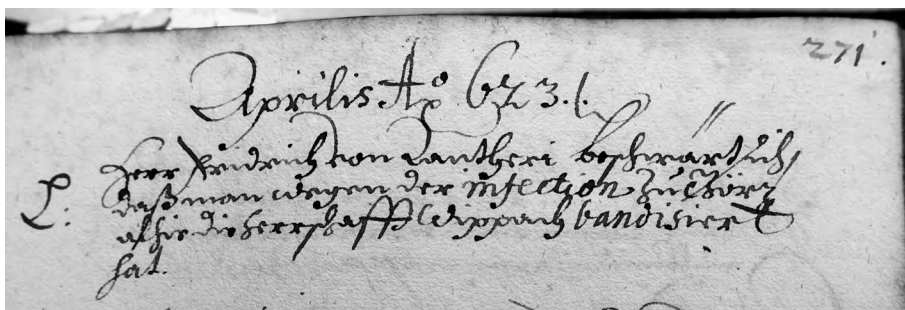 271.
Aprilis Aō 623.
L: Herr Fridrich von Lantheri beschwärt sich,
daß man wegen der infection zu Görz
alhie die Herrschafft Wippach bandisiert
hat.